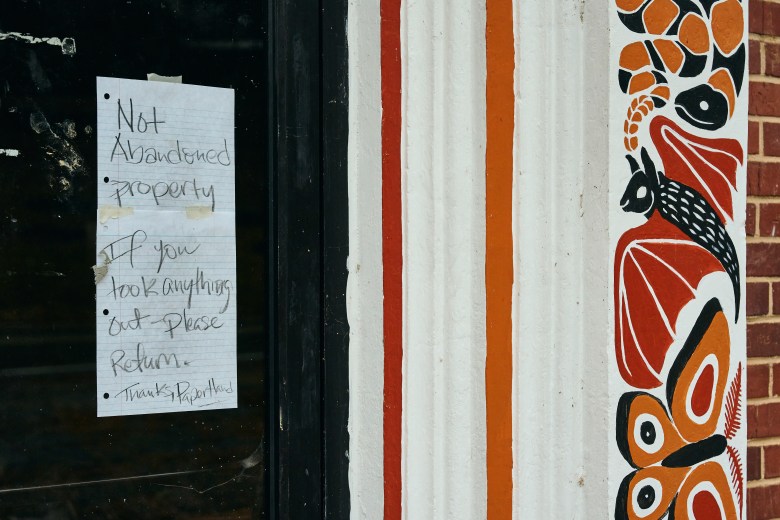 Not
Abandoned
property
If you
took anything
out - please
Return.
Thanks,